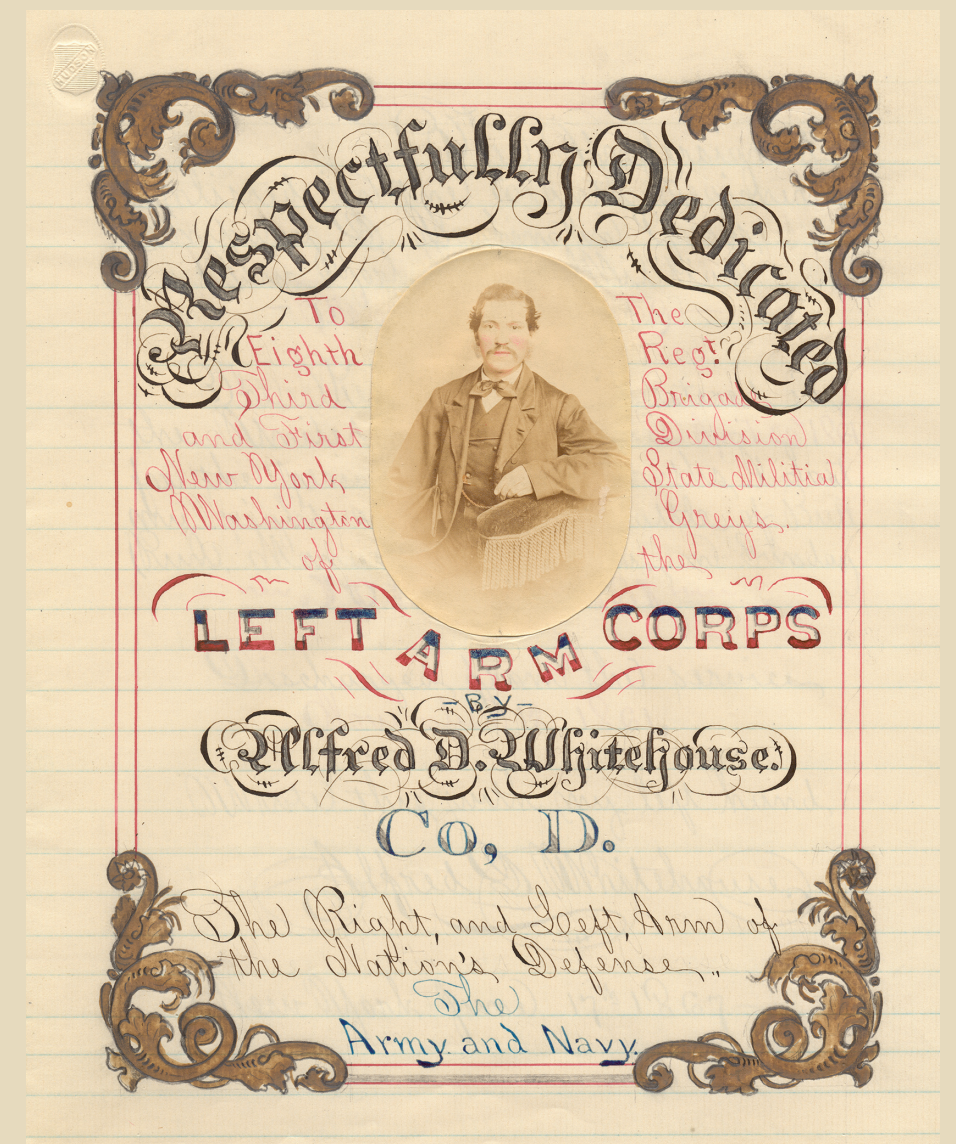 HUDSON
Respectfully Dedicated
To The
Eighth Regt.
Third Brigade
and First Division
New York State Militia
Washington Greys.
of the
LEFT ARM CORPS
-BY-
Alfred D. Whitehouse.
Co, D.
The Right, and Left, Arm of
the Nation's Defense,,
The
Army and Navy.